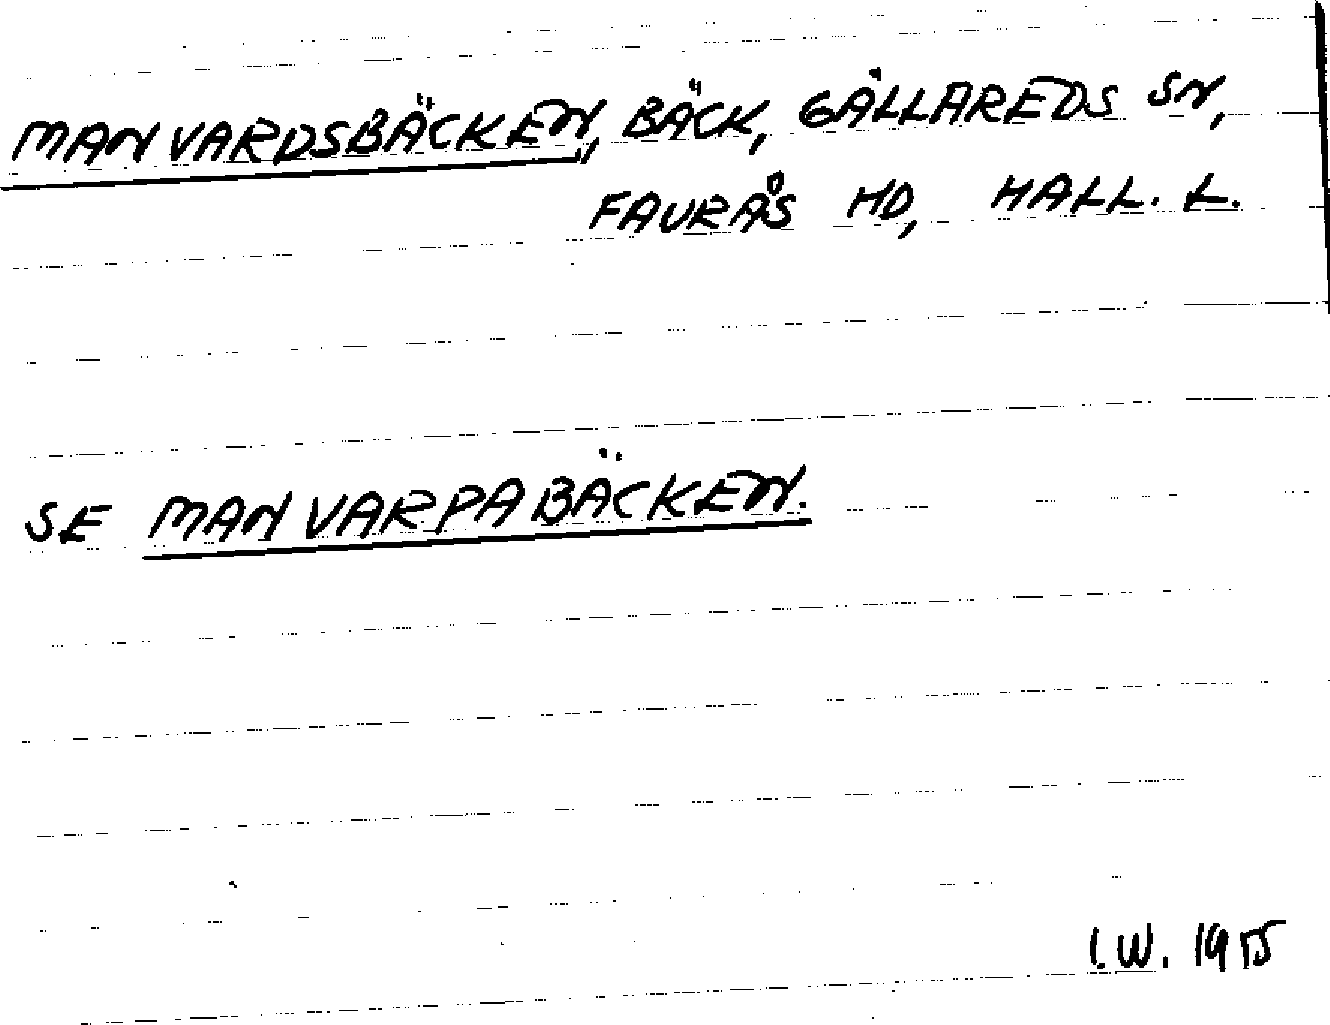 MANVARDSBÄCKEN, BÄCK, GÄLLAREDS SN,
FAURÅS HD, HALL. L.
SE MANVARPABÄCKEN.
I.W. 1915